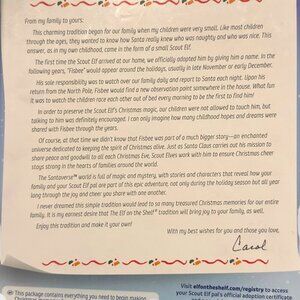 From my family to yours:
This charming tradition began for our family when my children were very small. Like most children
through the ages, they wanted to know how Santa really knew who was naughty and who was nice. This
answer, as in my own childhood, came in the form of a small Scout Elf.
The first time the Scout Elf arrived at our home, we officially adopted him by giving him a name. In the
following years, "Fisbee" would appear around the holidays, usually in late November or early December.
His sole responsibility was to watch over our family daily and report to Santa each night. Upon his
return from the North Pole, Fisbee would find a new observation point somewhere in the house. What fun
it was to watch the children race each other out of bed every morning to be the first to find him!
In order to preserve the Scout Elf's Christmas magic, our children were not allowed to touch him, but
talking to him was definitely encouraged. I can only imagine how many childhood hopes and dreams were
shared with Fisbee through the years.
Of course, at that time we didn't know that Fisbee was part of a much bigger story—an enchanted
universe dedicated to keeping the spirit of Christmas alive. Just as Santa Claus carries out his mission to
share peace and goodwill to all each Christmas Eve, Scout Elves work with him to ensure Christmas cheer
stays strong in the hearts of families around the world.
The Santaverse™ world is full of magic and mystery, with stories and characters that reveal how your
family and your Scout Elf pal are part of this epic adventure, not only during the holiday season but all year
long through the joy and cheer you share with one another.
I never dreamed this simple tradition would lead to so many treasured Christmas memories for our entire
family. It is my earnest desire that The Elf on the Shelf® tradition will bring joy to your family, as well.
Enjoy this tradition and make it your own!
With my best wishes for you and those you love,
Carol
Visit elfontheshelf.com/registry to access
your Scout Elf pal's official adoption certificate
This package contains everything you need to begin making